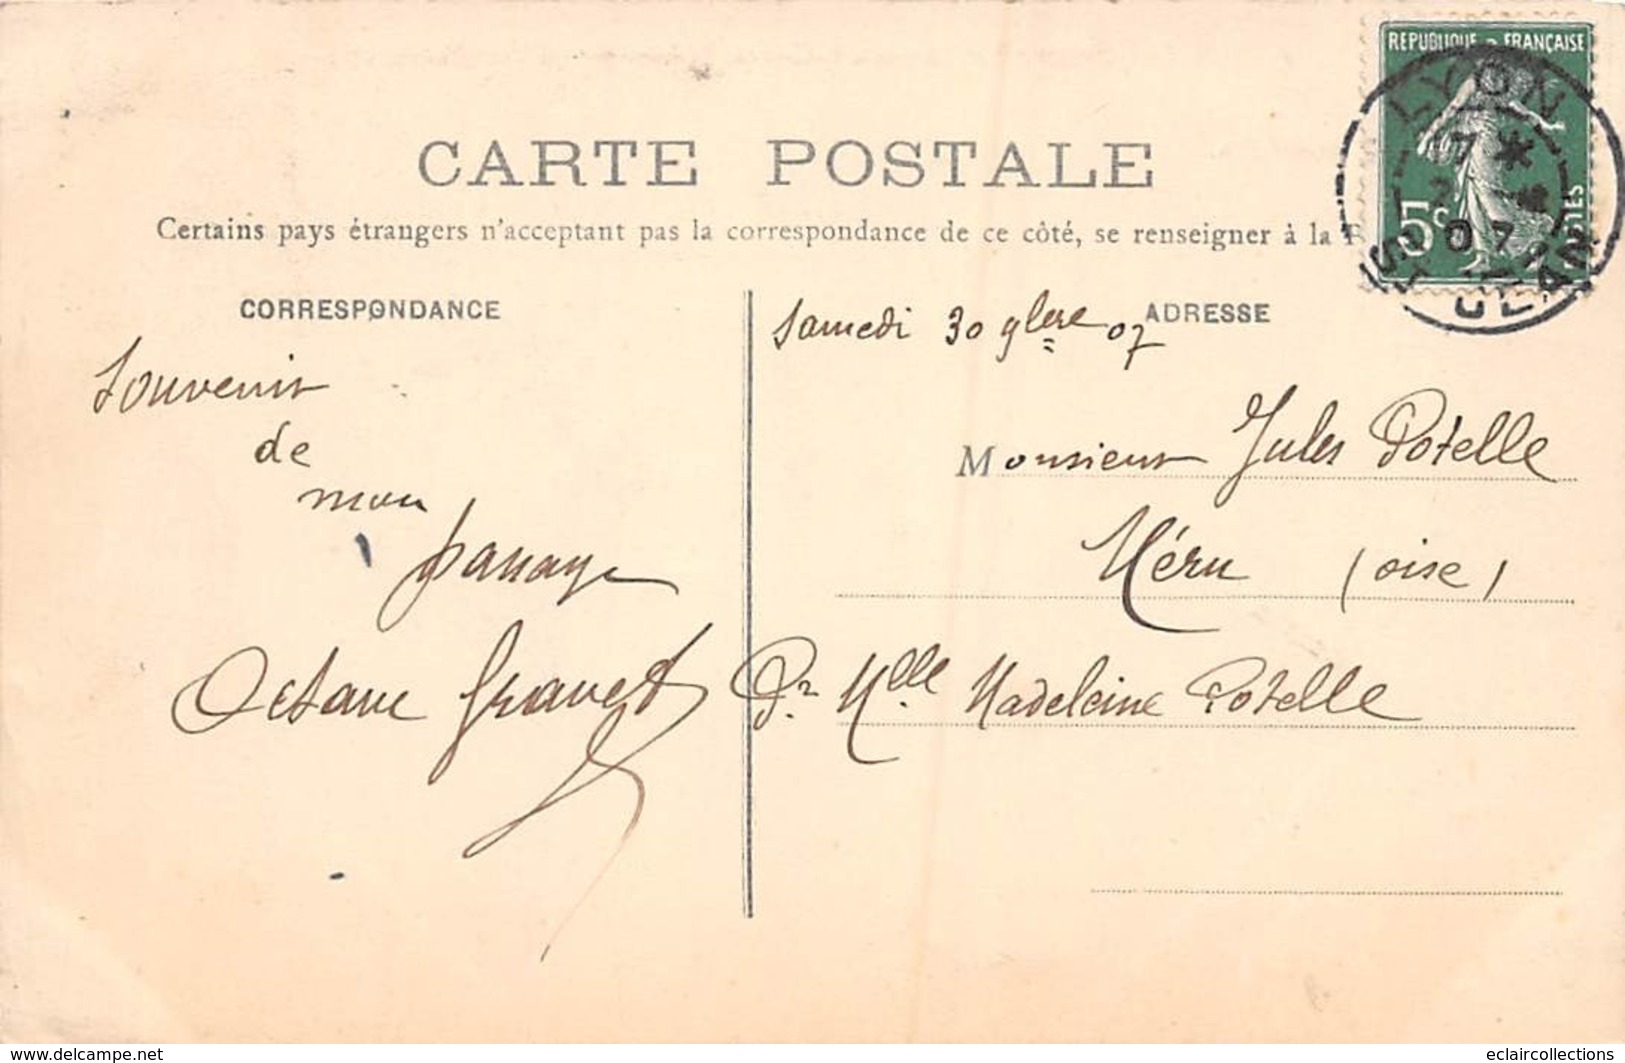 RÉPUBLIQUE FRANÇAISE
LYON
7 *
5c
07
ST JEAN
CARTE POSTALE
Certains pays étrangers n'acceptant pas la correspondance de ce côté, se renseigner à la
CORRESPONDANCE
ADRESSE
Samedi 30 9bre 07
Souvenir
de
mon
passage
Octave Gravet
Monsieur Jules Potelle
Méru (oise)
Pr Mlle Madeleine Potelle
www.delcampe.net
eclaircollections